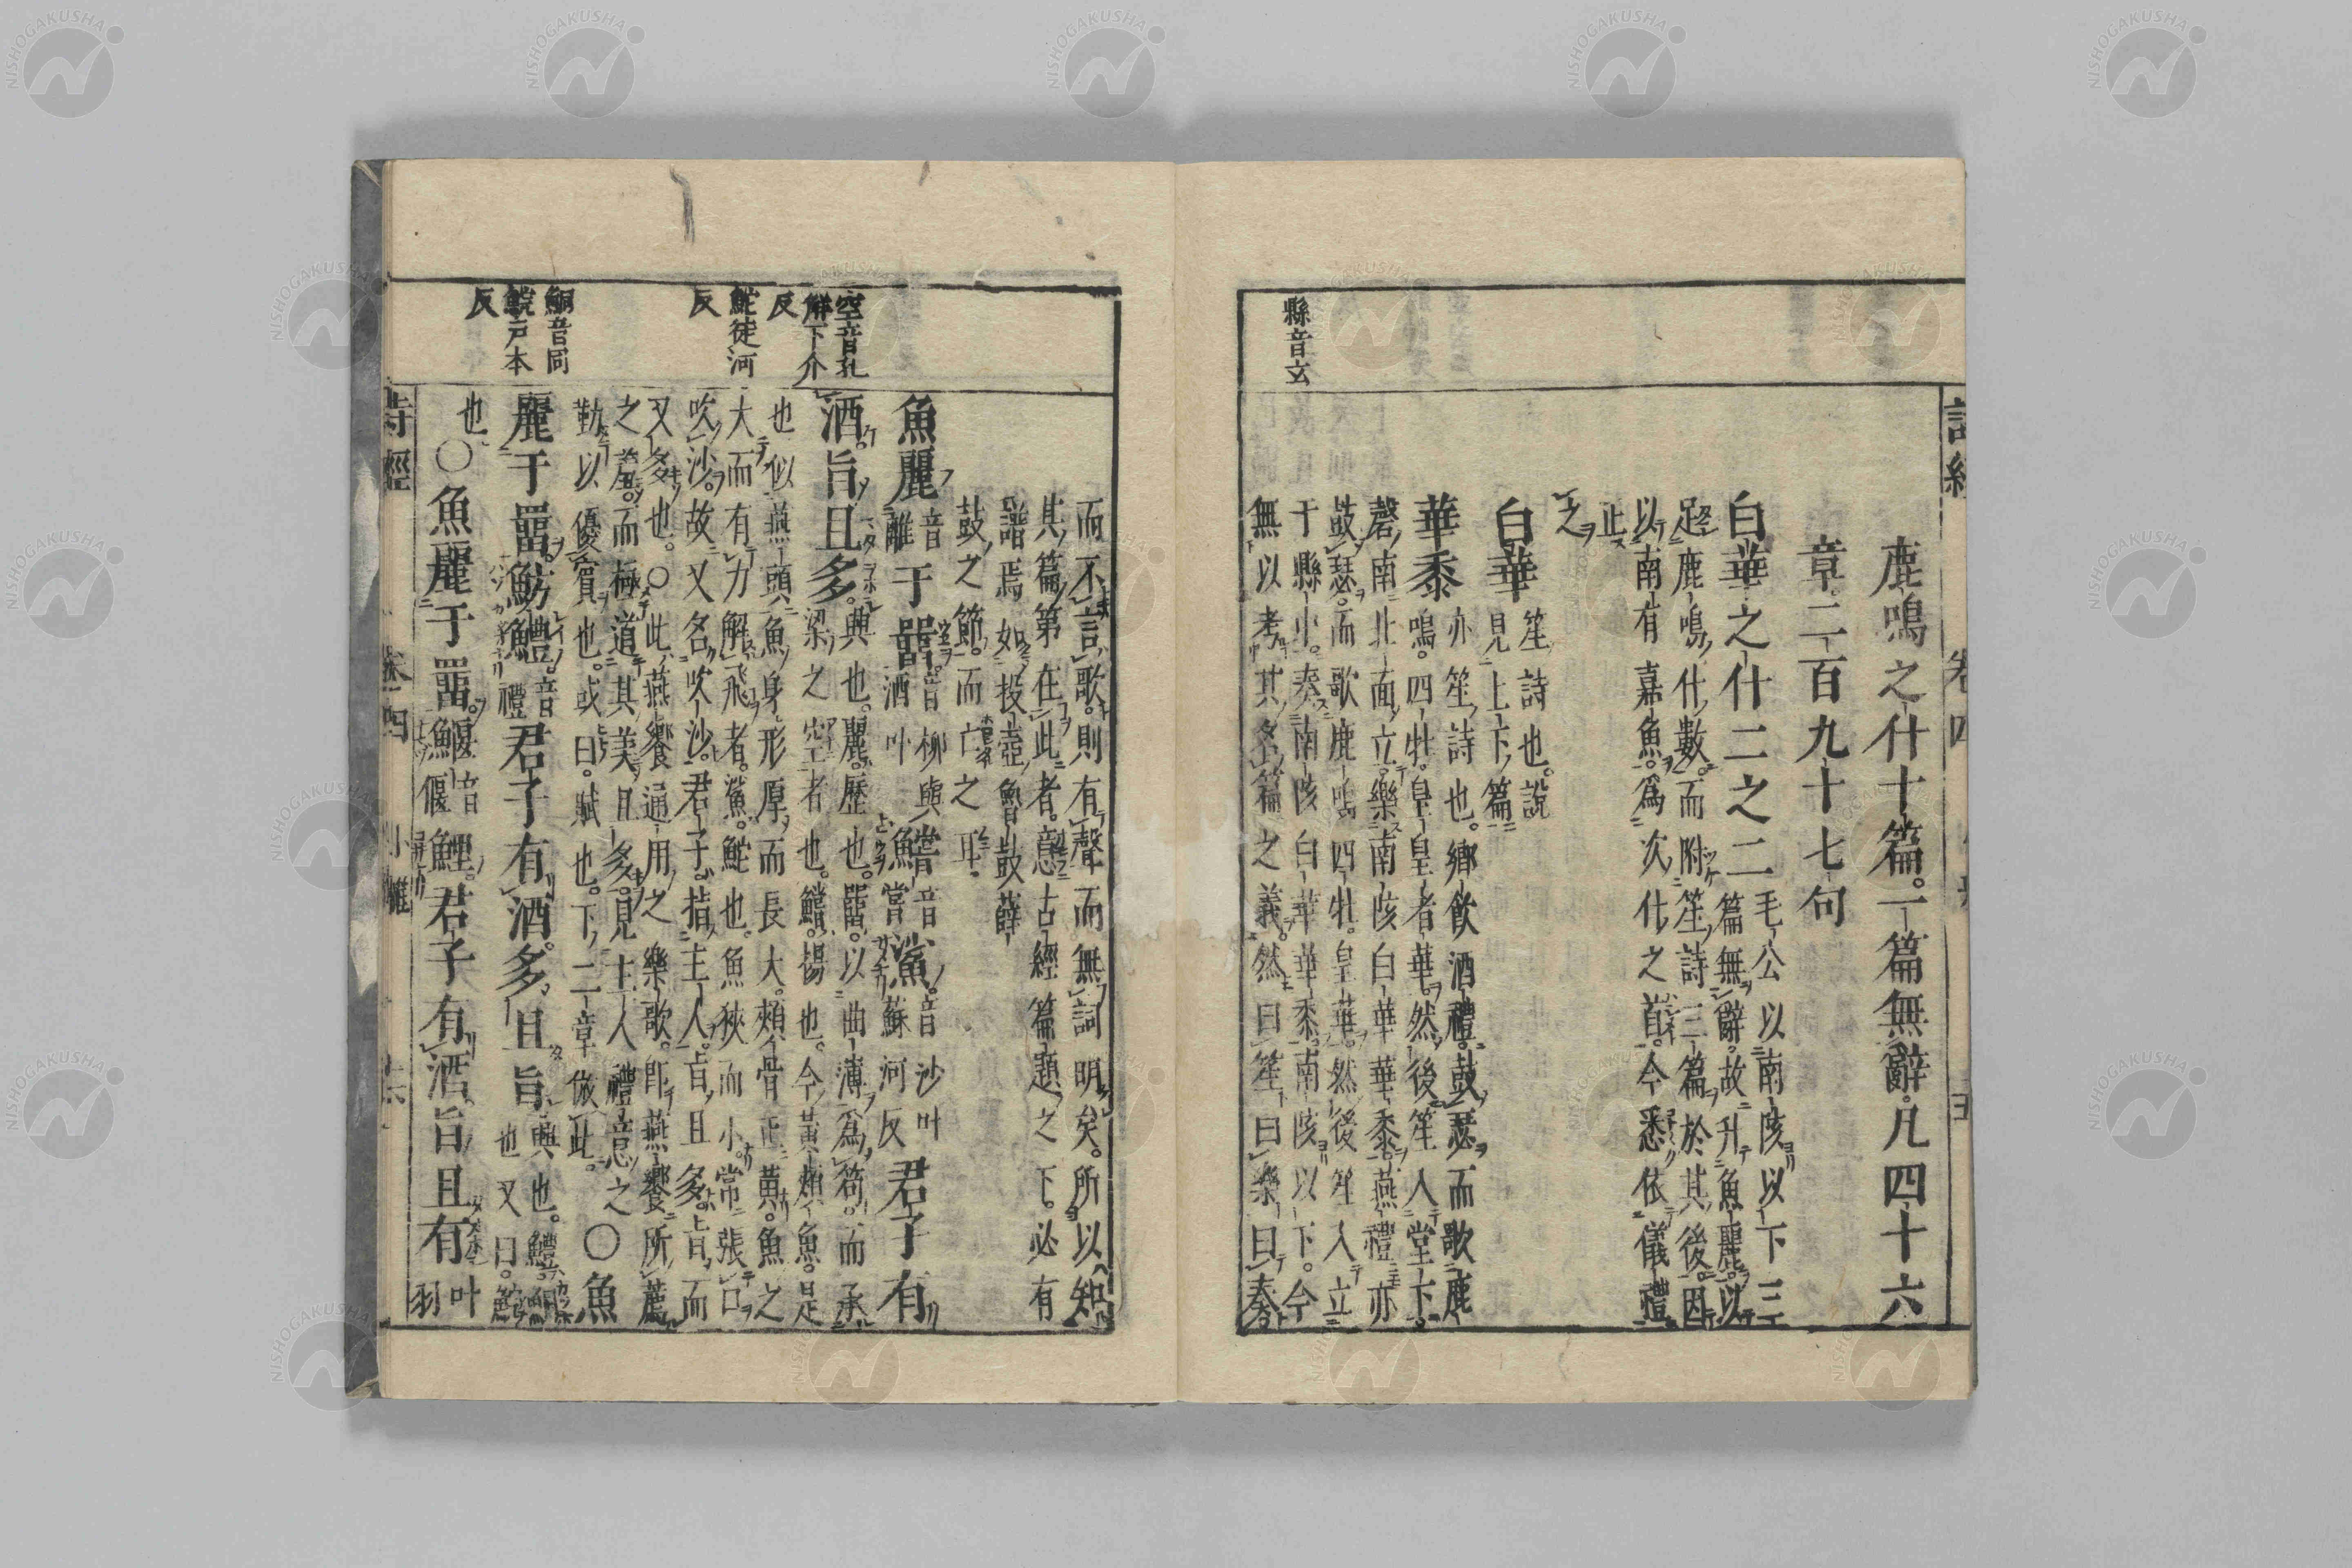 詩經
卷四
鹿鳴之什十篇。一篇無辭。凡四十六
章。二百九十七句
白華之什二之二
毛公以南陔以下三
篇無辭。故升魚麗。以
足鹿鳴什數。而附笙詩三篇於其後。因
以南有嘉魚。爲次什之首。今悉依儀禮
正
之
白華
笙詩也。說
見上下篇
華黍
亦笙詩也。鄉飲酒禮。鼓瑟而歌鹿
鳴。四牡。皇皇者華。然後笙入堂下。
磬南北面立。樂南陔白華華黍。燕禮亦
鼓瑟。而歌鹿鳴四牡。皇華。然後笙入立
于縣中。奏南陔白華華黍。南陔以下。今
無以考其名篇之義。然曰笙曰樂曰奏
縣音玄
而不言歌。則有聲而無詞明矣。所以知
其篇第在此者。意古經篇題之下。必有
譜焉如投壺魯鼓薛
鼓之節。而亡之耳。
魚麗
音
離
于罶。
音柳與
酒叶
鱨
音
嘗
鯊。
音沙叶
蘇河反
君子有
酒。旨且多。
興也。麗。歷也。罶。以曲薄爲笱。而承
梁之空者也。鱨。揚也。今黃頰魚。是
也似燕頭魚身形厚而長大。頰骨正黃。魚之
大而有力解飛者。鯊。鮀也。魚狹而小。常張口
吹沙。故又名吹沙。君子。指主人。旨且多。旨而
又多也。○此燕饗通用之樂歌。卽燕饗所薦
之羞。而極道其美且多。見主人禮意之
勤以優賓也。或曰。賦也。下二章倣此。
○魚
麗于罶。魴鱧。
音
禮
君子有酒。多且旨。
興也。鱧。鮦
也又曰。鯇
也
○魚麗于罶。鰋
音
偃
鯉。君子有酒旨且有
叶
羽
空音孔
解下介
反
鮀徒河
反
鮦音同
鯇戶本
反
詩經
卷四
小雅